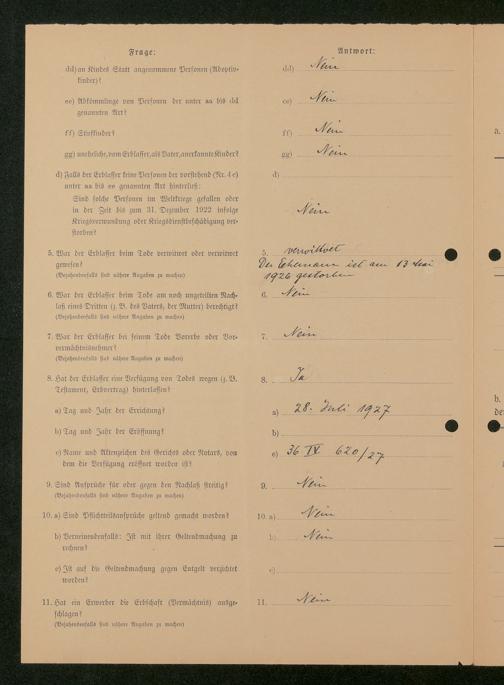 Frage:
Antwort:
dd) an Kindes Statt angenommene Personen (Adoptiv-
kinder)?
dd) Nein
ee) Abkömmlinge von Personen der unter aa bis dd
genannten Art?
ee) Nein
ff) Stiefkinder?
ff) Nein
gg) uneheliche, vom Erblasser, als Vater, anerkannte Kinder?
gg) Nein
d) Falls der Erblasser keine Personen der vorstehend (Nr. 4 c)
unter aa bis ee genannten Art hinterließ:
d)
Sind solche Personen im Weltkriege gefallen oder
in der Zeit bis zum 31. Dezember 1922 infolge
Kriegsverwundung oder Kriegsdienstbeschädigung ver-
storben?
Nein
5. War der Erblasser beim Tode verheiratet oder verwitwet
gewesen?
(Bejahendenfalls sind nähere Angaben zu machen)
5. verwitwet
Der Ehemann ist am 13
1926 gestorben
6. War der Erblasser beim Tode am noch ungeteilten Nach-
laß eines Dritten (z. B. des Vaters, der Mutter) berechtigt?
(Bejahendenfalls sind nähere Angaben zu machen)
6. Nein
7. War der Erblasser bei seinem Tode Vorerbe oder Vor-
vermächtnisnehmer?
(Bejahendenfalls sind nähere Angaben zu machen)
7. Nein
8. Hat der Erblasser eine Verfügung von Todes wegen (z. B.
Testament, Erbvertrag) hinterlassen?
8. Ja
a) Tag und Jahr der Errichtung?
a) 28. Juli 1927
b) Tag und Jahr der Eröffnung?
b)
c) Name und Aktenzeichen des Gerichts oder Notars, von
dem die Verfügung eröffnet worden ist?
c) 36 IV 620/27
9. Sind Ansprüche für oder gegen den Nachlaß streitig?
(Bejahendenfalls sind nähere Angaben zu machen)
9. Nein
10. a) Sind Pflichtteilsansprüche geltend gemacht worden?
10. a) Nein
b) Verneinendenfalls: Ist mit ihrer Geltendmachung zu
rechnen?
b) Nein
c) Ist auf die Geltendmachung gegen Entgelt verzichtet
worden?
c)
11. Hat ein Erwerber die Erbschaft (Vermächtnis) ausge-
schlagen?
(Bejahendenfalls sind nähere Angaben zu machen)
11. Nein
a.
b.